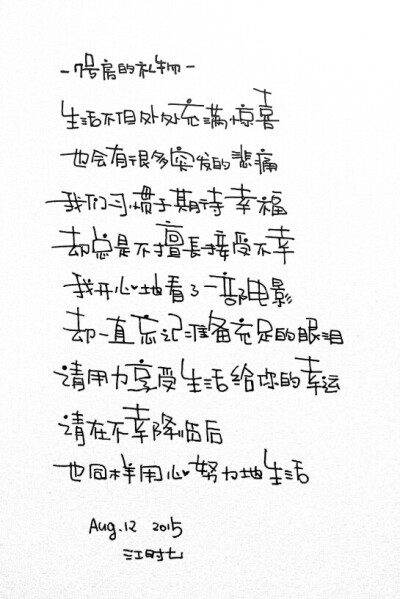 -7号房的礼物-
生活不但处处充满惊喜
也会有很多突发的悲痛
我们习惯于期待幸福
却总是不擅長接受不幸
我开心地看了一部电影
却一直忘记准备充足的眼泪
请用力享受生活给你的幸运
请在不幸降临后
也同样用心努力地生活
Aug.12 2015
江时七